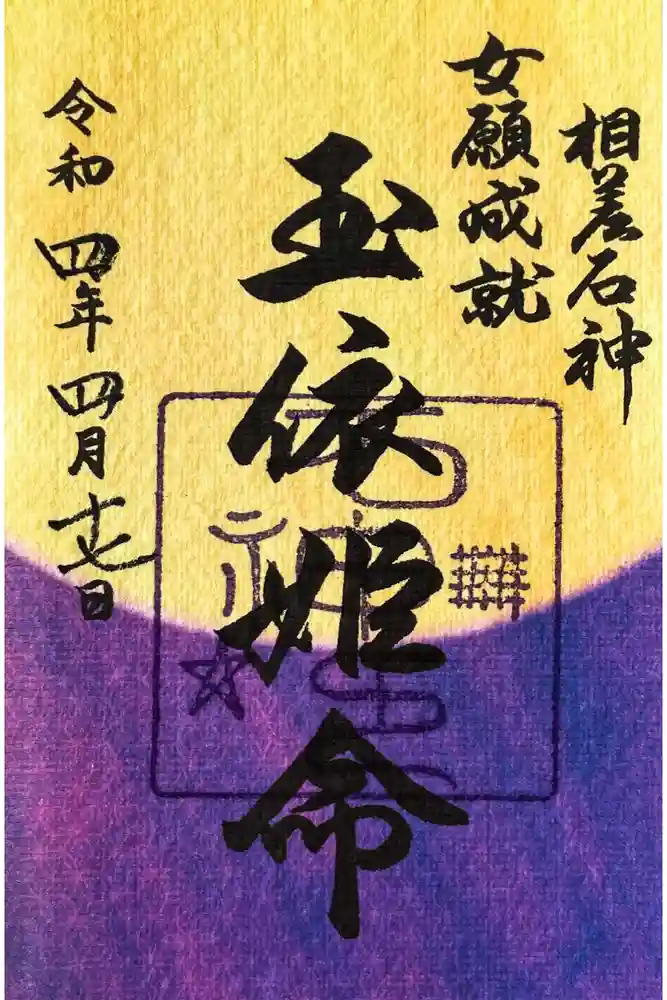 相差石神
女願成就
玉依姫命
令和四年四月十七日